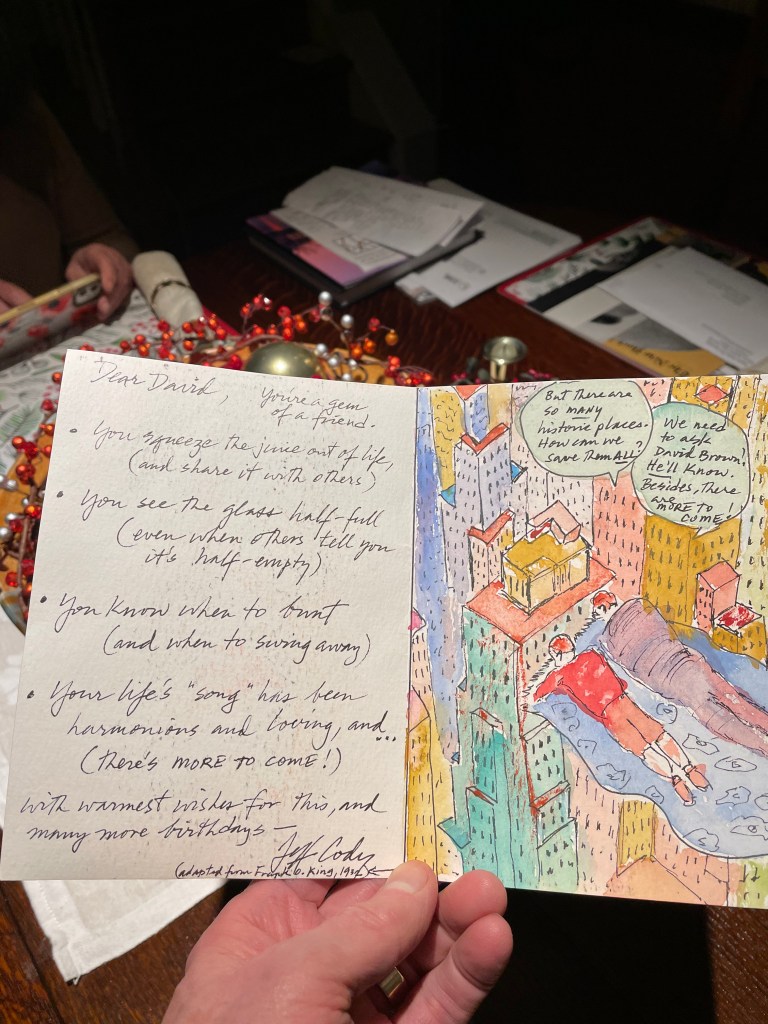 Dear David, You're a gem
of a friend.
• You squeeze the juice out of life,
(and share it with others)
• You see the glass half-full
(even when others tell you
it's half-empty)
• You know when to bunt
(and when to swing away)
• Your life's "song" has been
harmonious and loving, and...
(there's MORE TO COME!)
with warmest wishes for this, and
many more birthdays —
Jeff Cody
(adapted from Frank O. King,
But there are
so MANY
historic places.
How can we
save them ALL?
We need
to ask
David Brown!
He'll know.
Besides, there
are
MORE TO
COME!